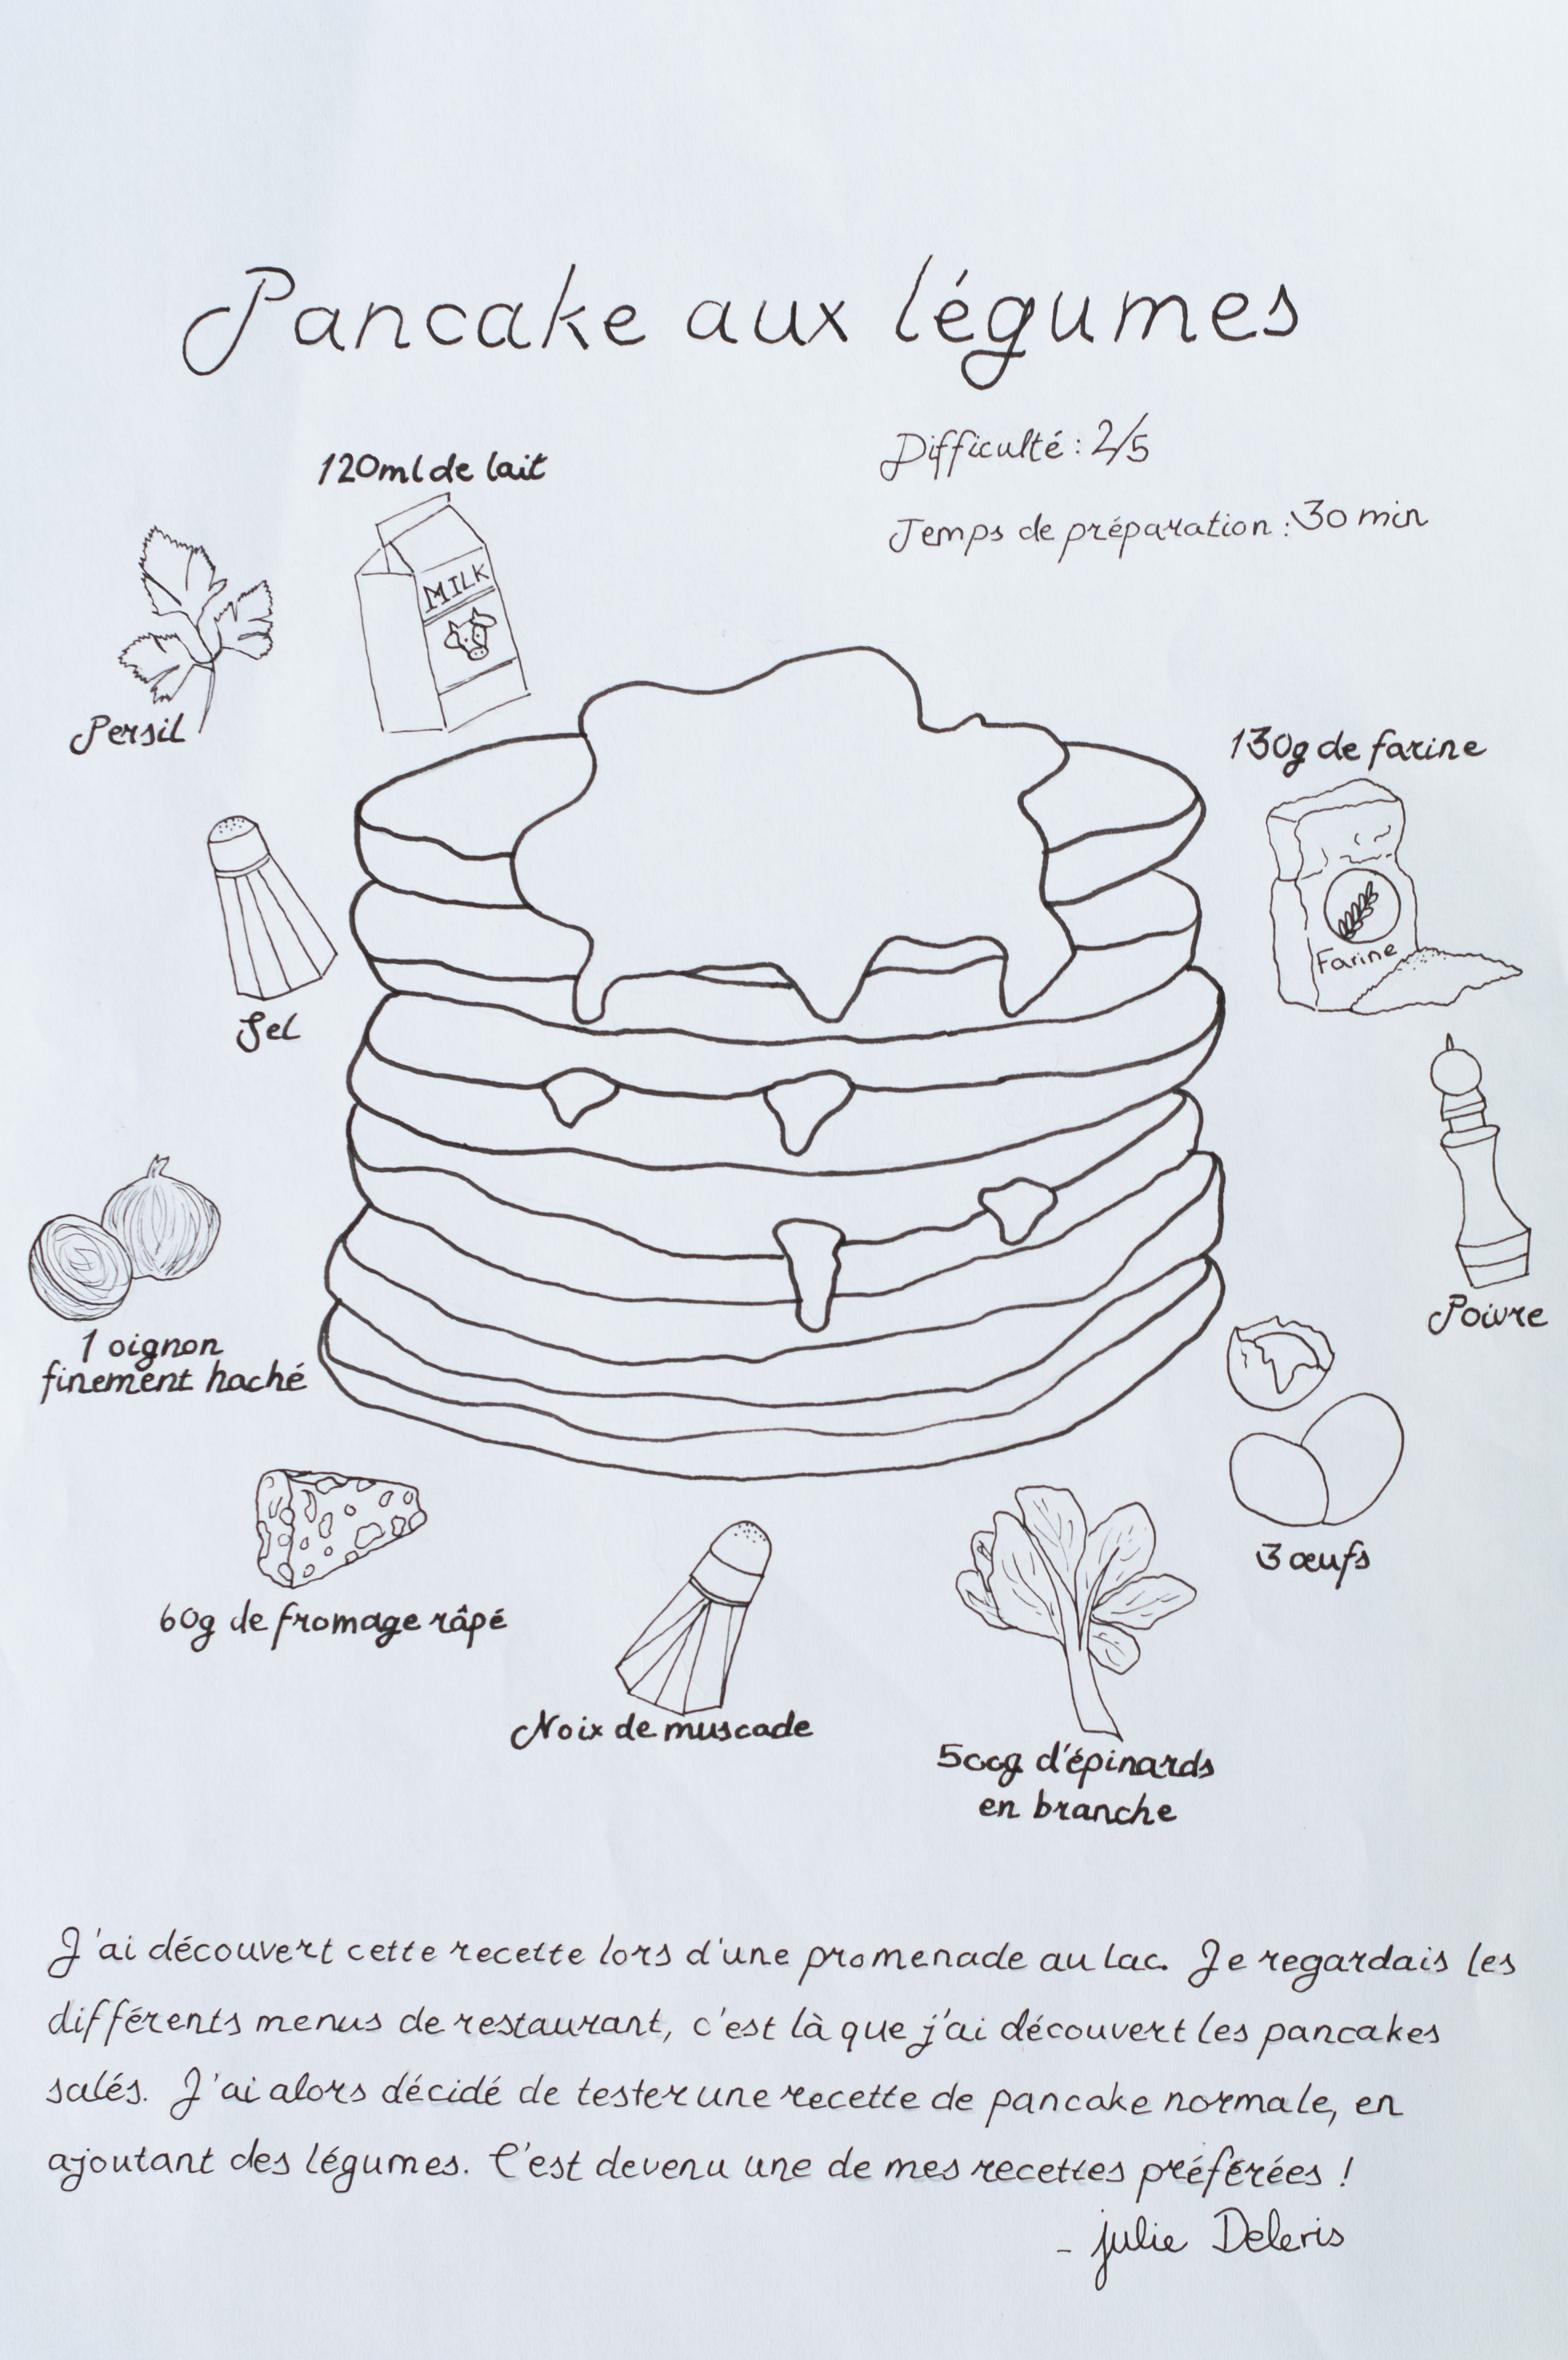 Pancake aux légumes
Difficulté : 2/5
Temps de préparation : 30 min
120ml de lait
MILK
Persil
130g de farine
Farine
Sel
Poivre
1 oignon
finement haché
3 œufs
60g de fromage râpé
Noix de muscade
500g d'épinards
en branche
J'ai découvert cette recette lors d'une promenade au lac. Je regardais les
différents menus de restaurant, c'est là que j'ai découvert les pancakes
salés. J'ai alors décidé de tester une recette de pancake normale, en
ajoutant des légumes. C'est devenu une de mes recettes préférées !
- julie Deleris